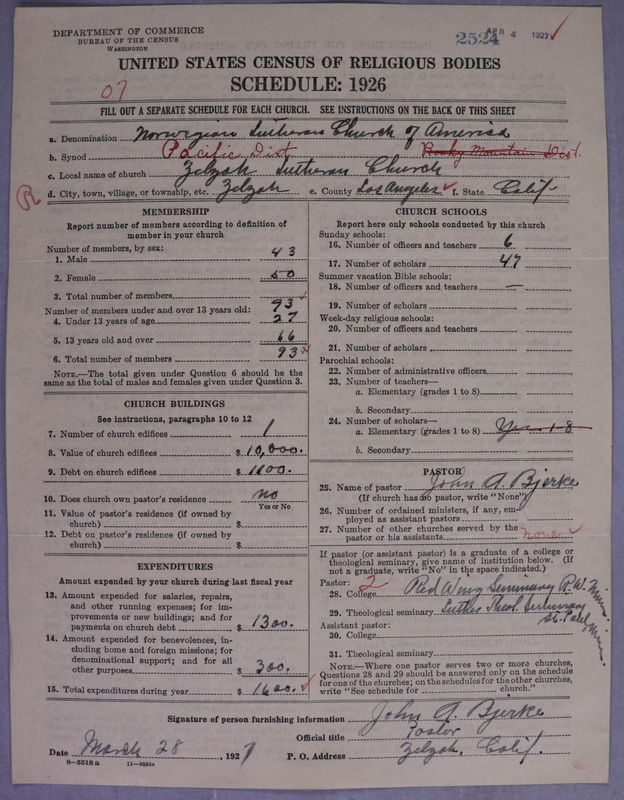 DEPARTMENT OF COMMERCE
BUREAU OF THE CENSUS
WASHINGTON
2524 APR 4 1927
UNITED STATES CENSUS OF RELIGIOUS BODIES
07
SCHEDULE: 1926
FILL OUT A SEPARATE SCHEDULE FOR EACH CHURCH. SEE INSTRUCTIONS ON THE BACK OF THIS SHEET
a. Denomination Norwegian Lutheran Church of America
b. Synod Pacific Dist Rocky Mountain Dist.
c. Local name of church Zelzah Lutheran Church
R
d. City, town, village, or township, etc. Zelzah e. County Los Angeles f. State Calif
MEMBERSHIP
Report number of members according to definition of
member in your church
Number of members, by sex:
1. Male 43
2. Female 50
3. Total number of members 93
Number of members under and over 13 years old:
4. Under 13 years of age 27
5. 13 years old and over 66
6. Total number of members 93
NOTE.—The total given under Question 6 should be
same as the total of males and females given under Question 3.
CHURCH BUILDINGS
See instructions, paragraphs 10 to 12
7. Number of church edifices 1
8. Value of church edifices $ 10,000.
9. Debt on church edifices $ 1100.
10. Does church own pastor's residence no
Yes or No
11. Value of pastor's residence (if owned by
church) $
12. Debt on pastor's residence (if owned by
church) $
EXPENDITURES
Amount expended by your church during last fiscal year
13. Amount expended for salaries, repairs,
and other running expenses; for im-
provements or new buildings; and for
payments on church debt $ 1300.
14. Amount expended for benevolences, in-
cluding home and foreign missions; for
denominational support; and for all
other purposes $ 300.
15. Total expenditures during year $ 1600.
CHURCH SCHOOLS
Report here only schools conducted by this church
Sunday schools:
16. Number of officers and teachers 6
17. Number of scholars 47
Summer vacation Bible schools:
18. Number of officers and teachers —
19. Number of scholars
Week-day religious schools:
20. Number of officers and teachers
21. Number of scholars
Parochial schools:
22. Number of administrative officers
23. Number of teachers—
a. Elementary (grades 1 to 8)
b. Secondary
24. Number of scholars—
a. Elementary (grades 1 to 8) Yes 1-8
b. Secondary
PASTOR
25. Name of pastor John A. Bjerke
(If church has no pastor, write "None")
26. Number of ordained ministers, if any, em-
ployed as assistant pastors
27. Number of other churches served by the
pastor or his assistants none
If pastor (or assistant pastor) is a graduate of a college or
theological seminary, give name of institution below. (If
not a graduate, write "No" in the space indicated.)
Pastor: 2
28. College Red Wing Seminary R.W. Minn.
29. Theological seminary Luther Theol. Seminary St. Paul, Minn.
Assistant pastor:
30. College
31. Theological seminary
NOTE.—Where one pastor serves two or more churches,
Questions 28 and 29 should be answered only on the schedule
for one of the churches; on the schedules for the other churches,
write "See schedule for church."
Signature of person furnishing information John A. Bjerke
Official title Pastor
Date March 28, 1927 P. O. Address Zelzah, Calif.
8—5518 a